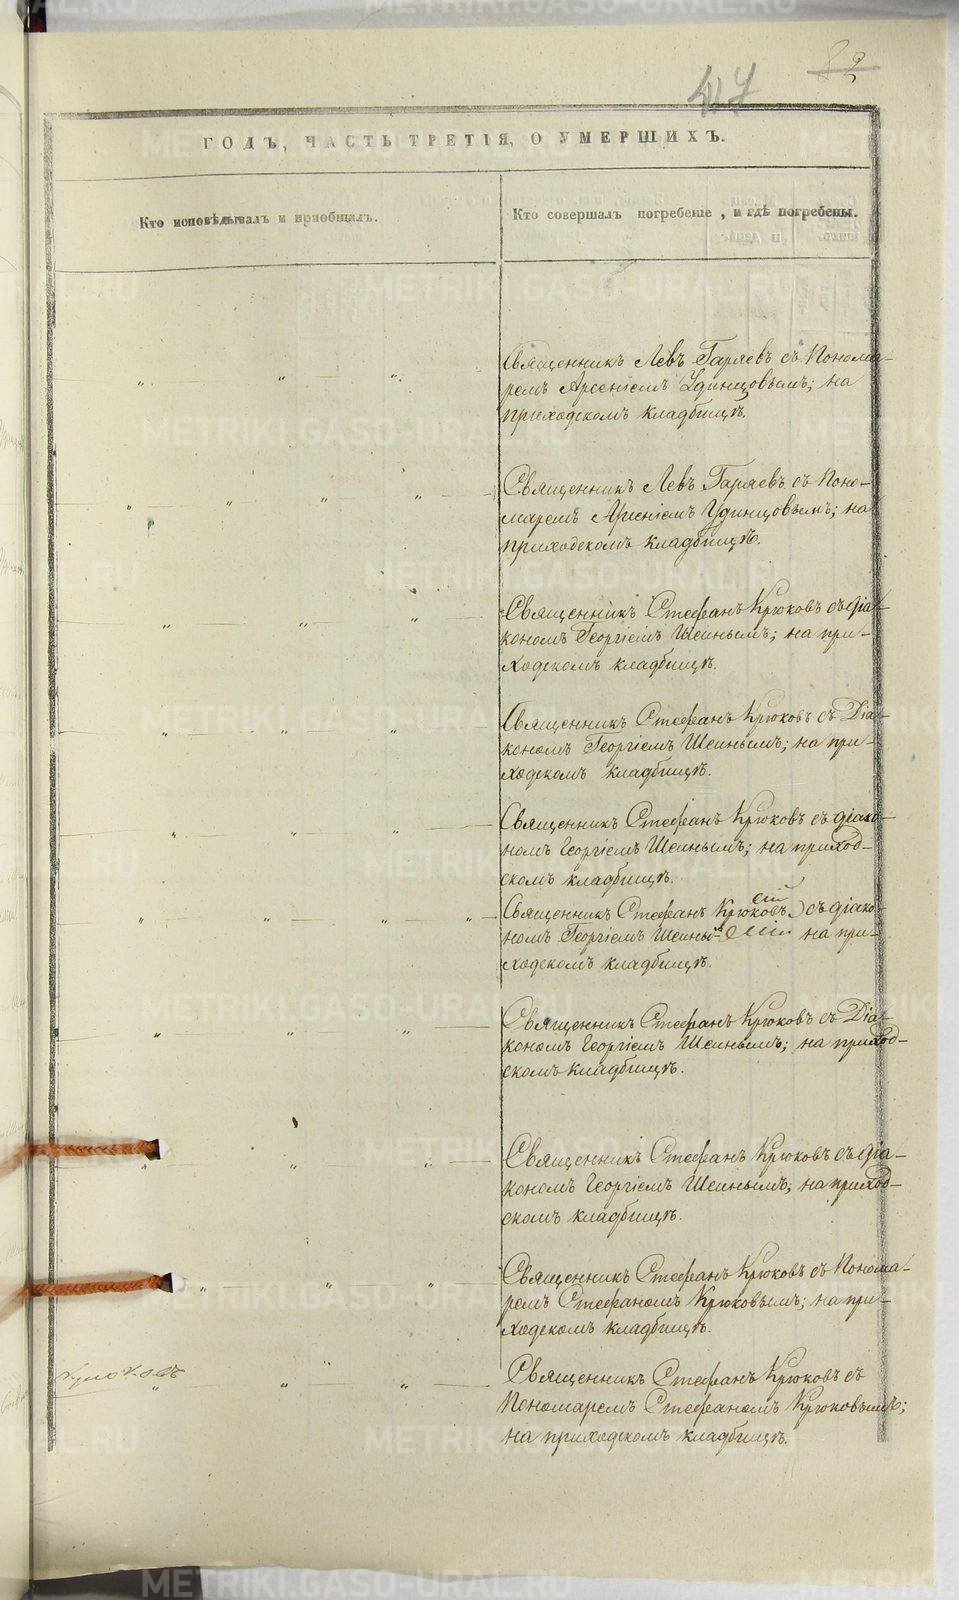 82
417
ГОДЪ, ЧАСТЬ ТРЕТІЯ, О УМЕРШИХЪ.
Кто исповѣдывалъ и пріобщалъ.
Кто совершалъ погребеніе, и гдѣ погребены.
Священникъ Левъ Гаряевъ съ Понома-
ремъ Арсеніемъ Удинцовымъ; на
приходскомъ кладбищѣ.
Священникъ Левъ Гаряевъ съ Поно-
маремъ Арсеніемъ Удинцовымъ; на
приходскомъ кладбищѣ.
Священникъ Стефанъ Крюковъ съ діа-
кономъ Георгіемъ Шеинымъ; на при-
ходскомъ кладбищѣ.
Священникъ Стефанъ Крюковъ съ Діа-
кономъ Георгіемъ Шеинымъ; на при-
ходскомъ кладбищѣ.
Священникъ Стефанъ Крюковъ съ діако-
номъ Георгіемъ Шеинымъ; на приход-
скомъ кладбищѣ.
Священникъ Стефанъ Крюковъ съ діако-
номъ Георгіемъ на при-
ходскомъ кладбищѣ.
Священникъ Стефанъ Крюковъ съ Діа-
кономъ Георгіемъ Шеинымъ; на приход-
скомъ кладбищѣ.
Священникъ Стефанъ Крюковъ съ діа-
кономъ Георгіемъ Шеинымъ; на приход-
скомъ кладбищѣ.
Священникъ Стефанъ Крюковъ съ Понома-
ремъ Стефаномъ Крюковымъ; на при-
ходскомъ кладбищѣ.
Крюковъ
Священникъ Стефанъ Крюковъ съ
Пономаремъ Стефаномъ Крюковымъ;
на приходскомъ кладбищѣ.
METRIKI.GASO-URAL.RU